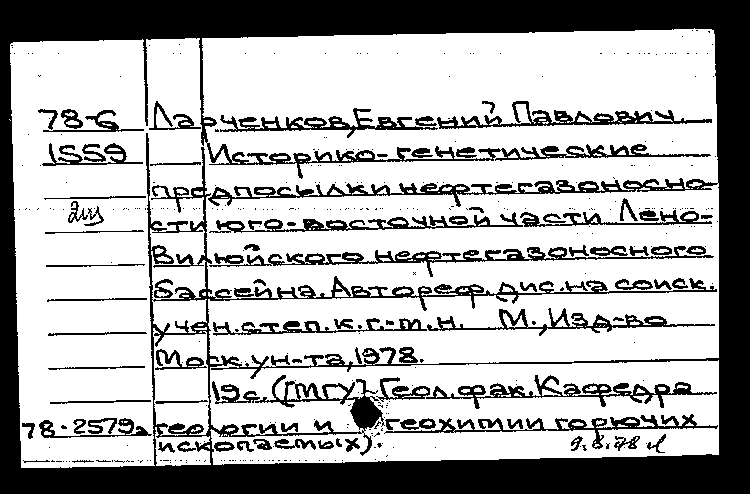 78-6 Ларченков, Евгений Павлович
1559 Историко-генетические
предпосылки нефтегазоносно-
сти юго-восточной части Лено-
Вилюйского нефтегазоносного
бассейна. Автореф. дис. на соиск.
учен. степ. к. г.-м. н. М., Изд-во
Моск. ун-та, 1978.
19с. (МГУ} Геол. фак. Кафедра
78-2579а геологии и геохимии горючих
ископаемых).
9.8.78